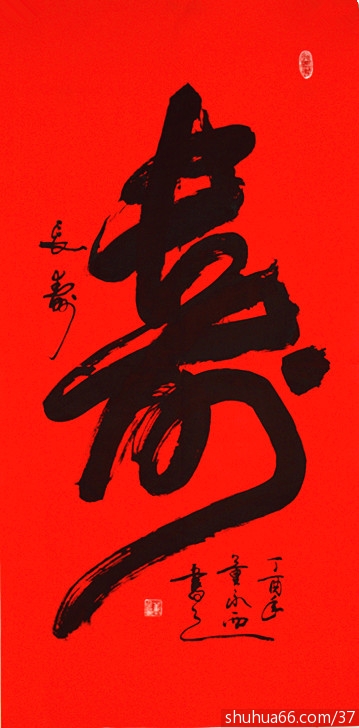 壽
長壽
丁酉年
董永西
書之
shuhua66.com/37